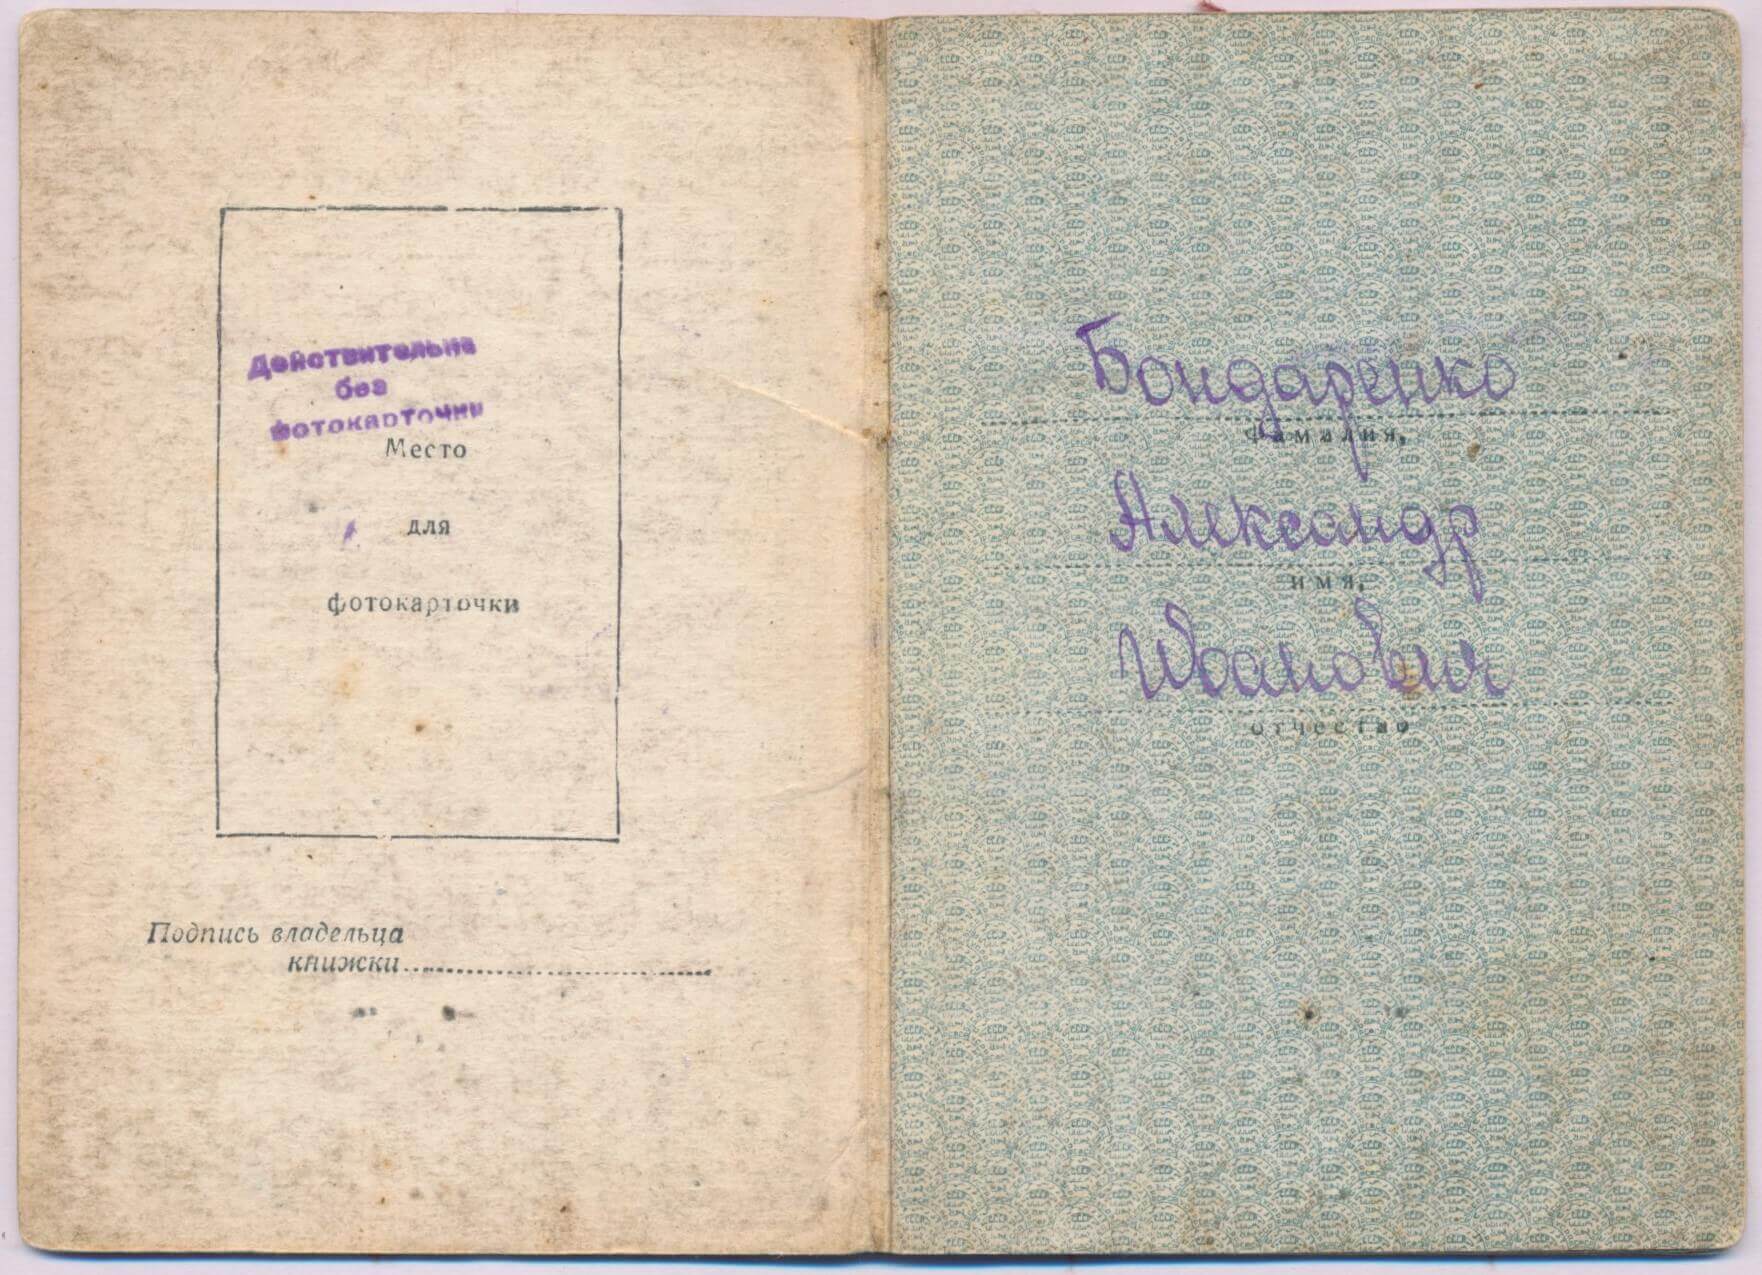 Действительна
без
фотокарточки
Место
для
фотокарточки
Подпись владельца
книжки
Бондаренко
фамилия,
Александр
имя,
Иванович
отчество